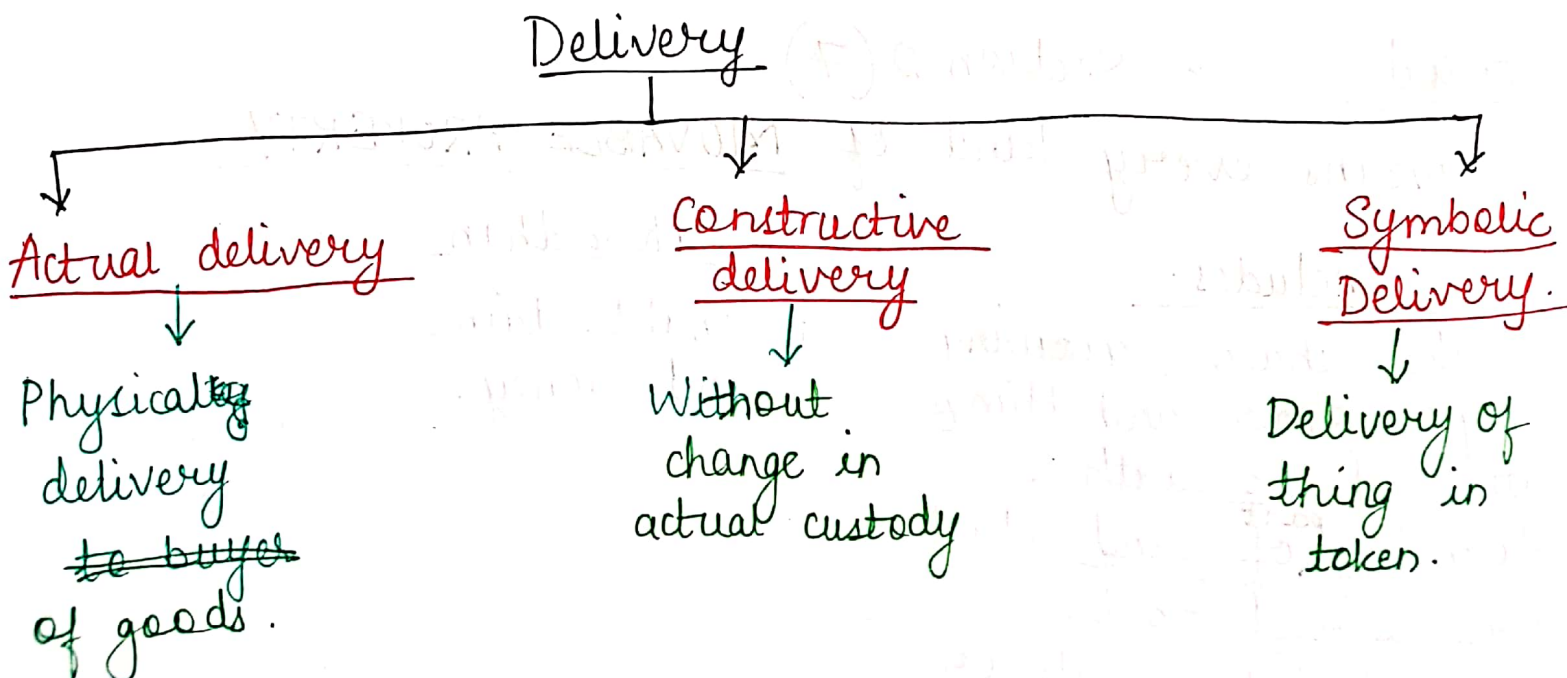 Delivery
Actual delivery
Physical
delivery
to buyer
of goods.
Constructive
delivery
Without
change in
actual custody
Symbolic
Delivery.
Delivery of
thing in
token.